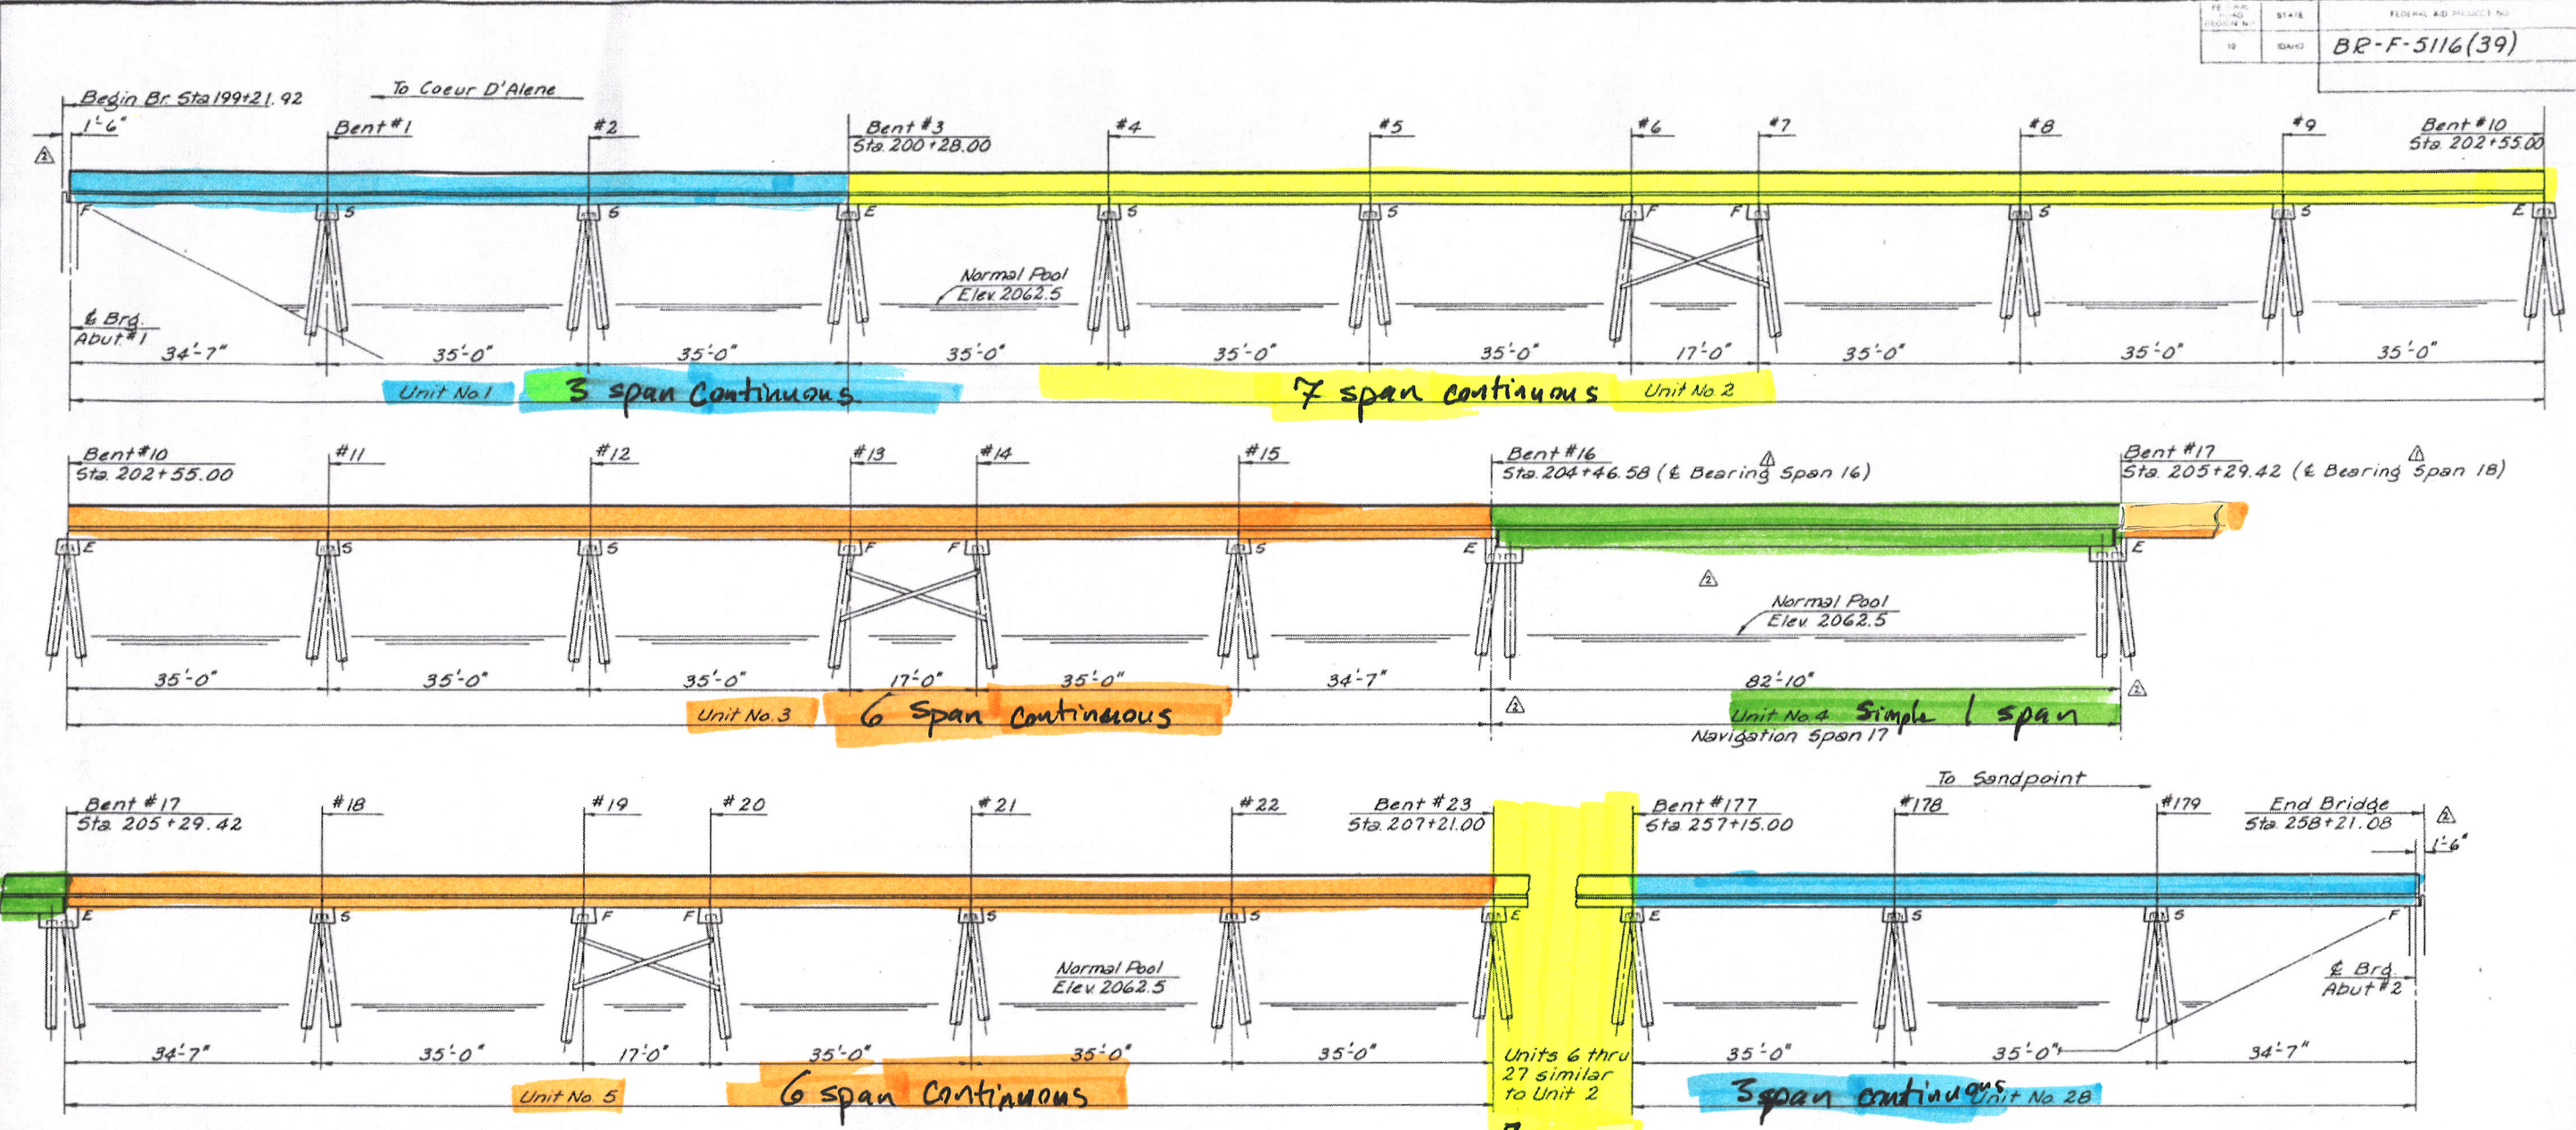 FEDERAL AID PROJECT NO.
STATE
10 IDAHO BR-F-5116(39)
Begin Br. Sta 199+21.92
To Coeur D'Alene
1'-6"
Bent #1
#2
Bent #3
Sta. 200+28.00
#4
#5
#6
#7
#8
#9
Bent #10
Sta. 202+55.00
2
F S S E S S F F S S E
Normal Pool
Elev. 2062.5
℄ Brg.
Abut #1
34'-7" 35'-0" 35'-0" 35'-0" 35'-0" 35'-0" 17'-0" 35'-0" 35'-0" 35'-0"
Unit No.1 3 span Continuous
7 span continuous Unit No. 2
Bent #10
Sta. 202+55.00
#11
#12
#13
#14
#15
Bent #16 1
Sta. 204+46.58 (℄ Bearing Span 16)
Bent #17 1
Sta. 205+29.42 (℄ Bearing Span 18)
E S S F F S E E
2
Normal Pool
Elev. 2062.5
35'-0" 35'-0" 35'-0" 17'-0" 35'-0" 34'-7" 82'-10"
2 2
Unit No. 3 6 Span continuous
Unit No. 4 Simple 1 span
Navigation Span 17
To Sandpoint
Bent #17
Sta. 205+29.42
#18
#19
#20
#21
#22
Bent #23
Sta. 207+21.00
Bent #177
Sta. 257+15.00
#178
#179
End Bridge
Sta. 258+21.08
2
1'-6"
E S F F S S E E S S F
Normal Pool
Elev. 2062.5
℄ Brg.
Abut #2
34'-7" 35'-0" 17'-0" 35'-0" 35'-0" 35'-0"
Units 6 thru
27 similar
to Unit 2
35'-0" 35'-0" 34'-7"
Unit No. 5 6 span Continuous
3 span continuous Unit No. 28